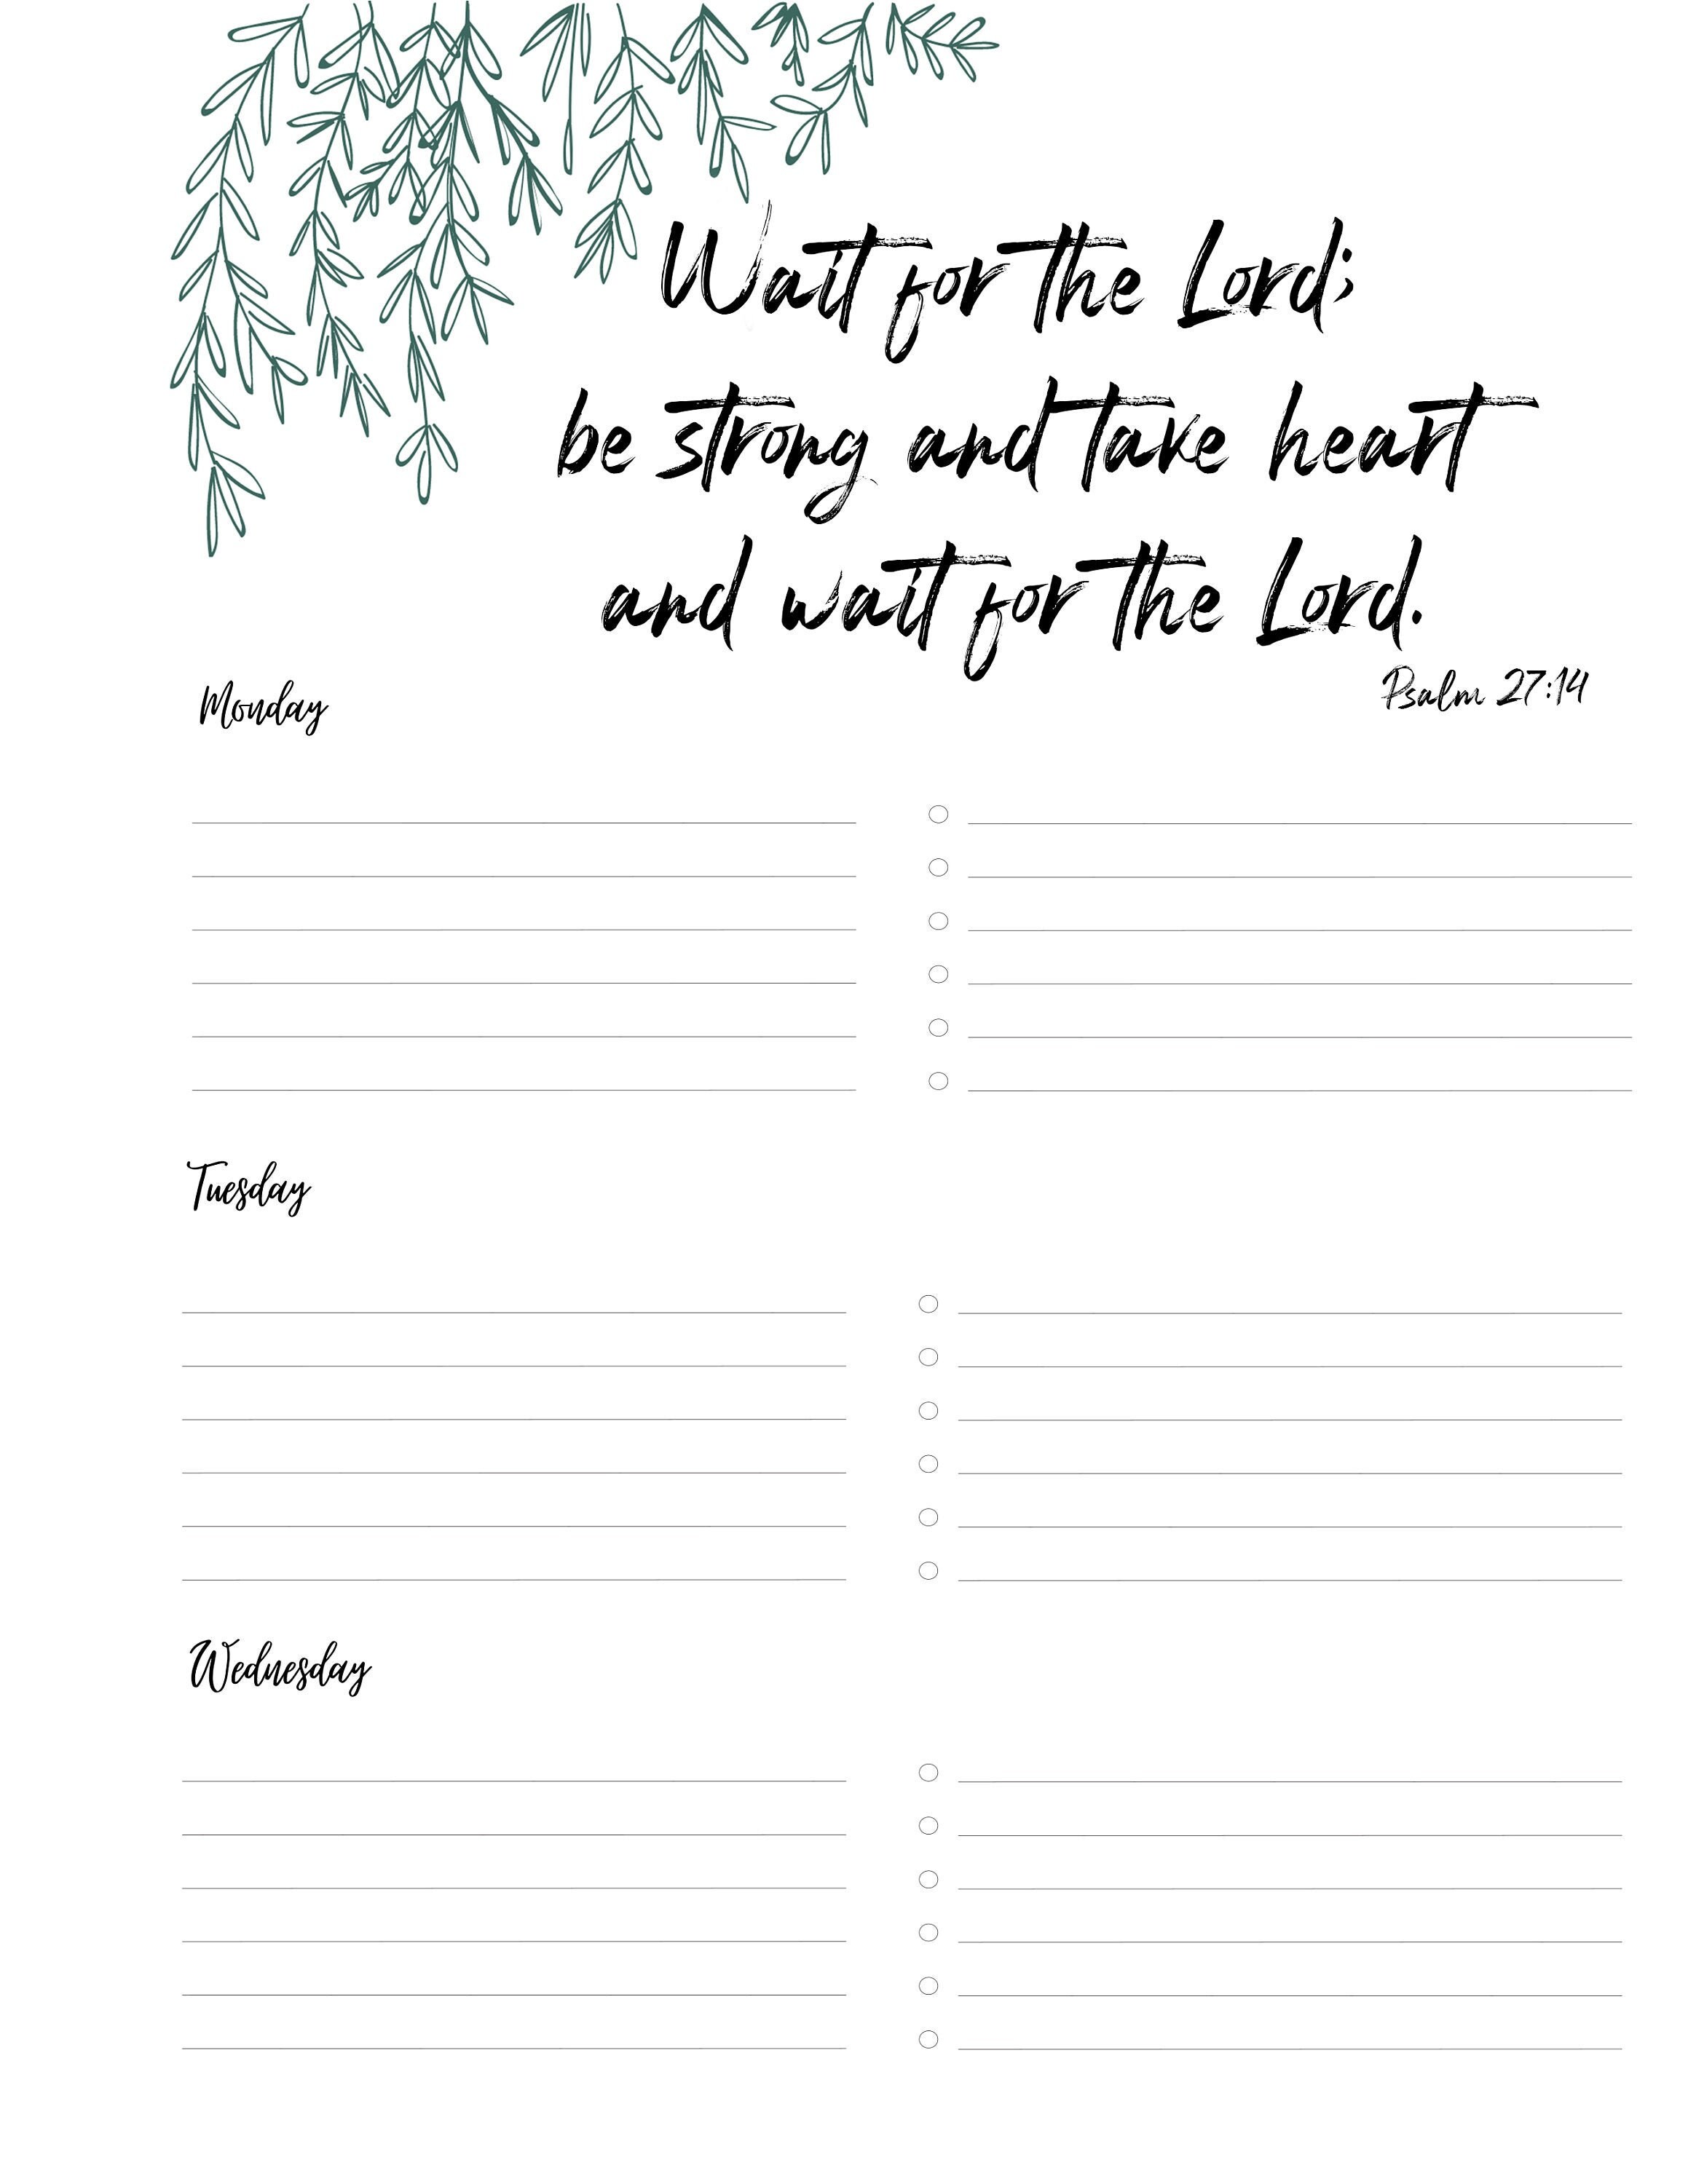 Wait for the Lord;
be strong and take heart
and wait for the Lord.
Psalm 27:14
Monday
Tuesday
Wednesday